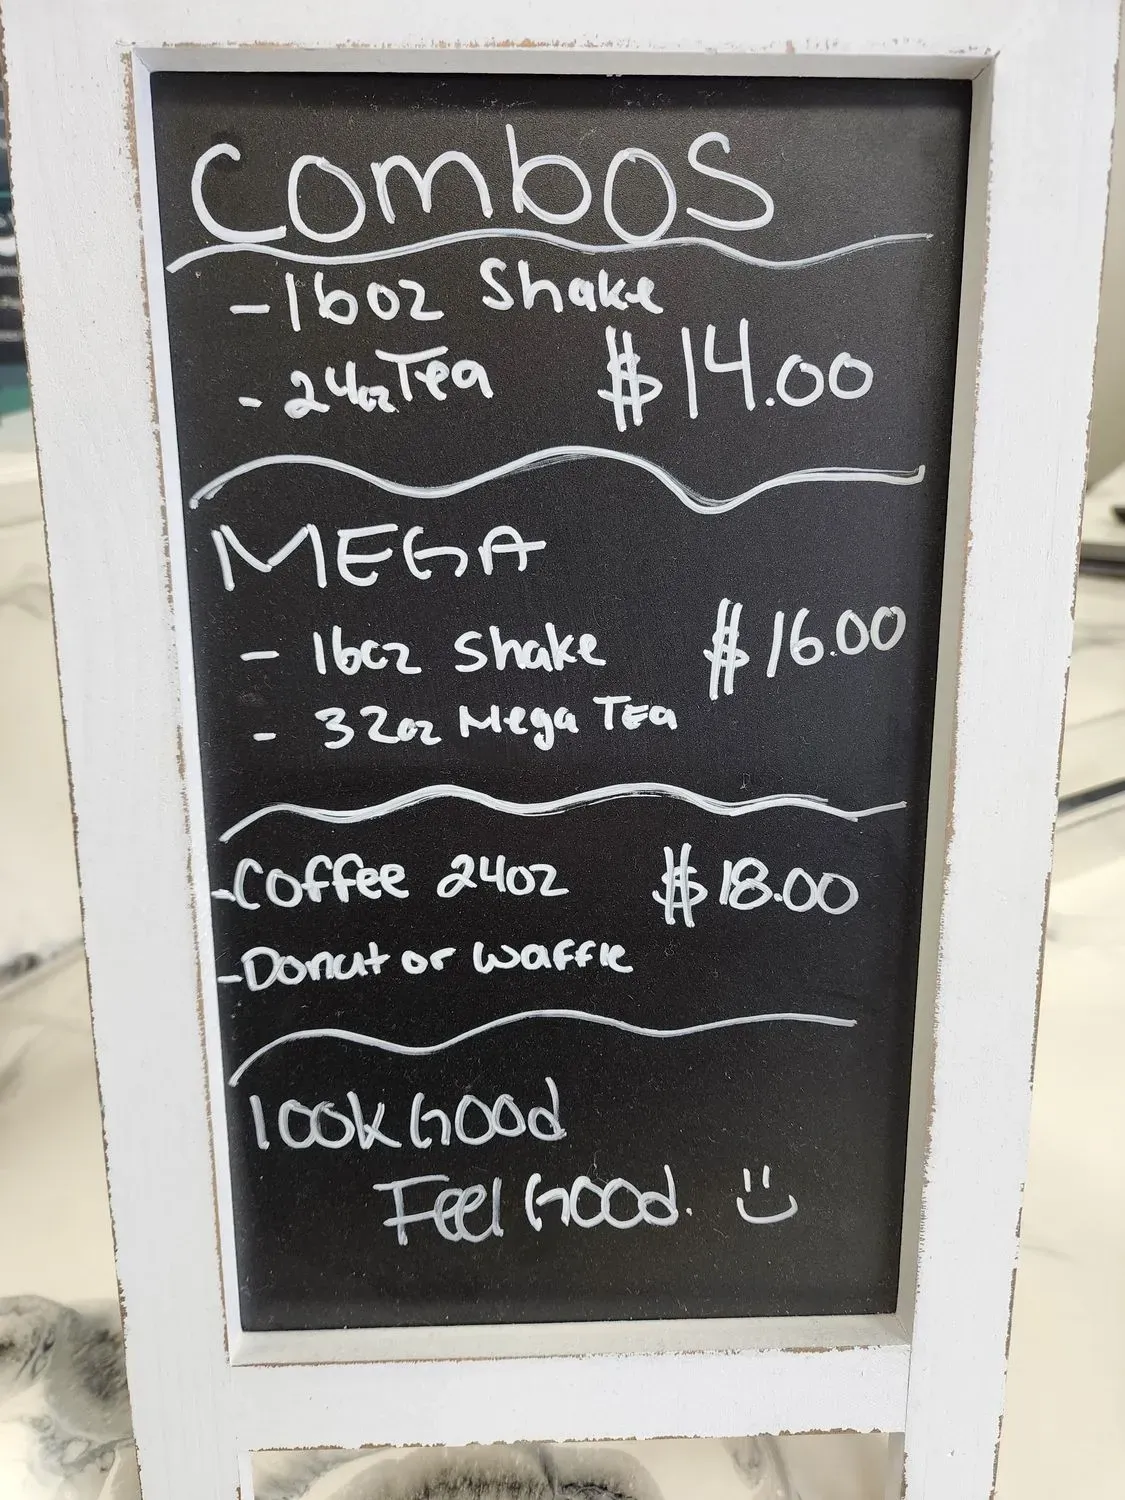 Combos
- 16oz Shake
- 24oz Tea $14.00
MEGA
- 16oz Shake $16.00
- 32oz Mega Tea
- Coffee 24oz $18.00
- Donut or Waffle
look Good
Feel Good.